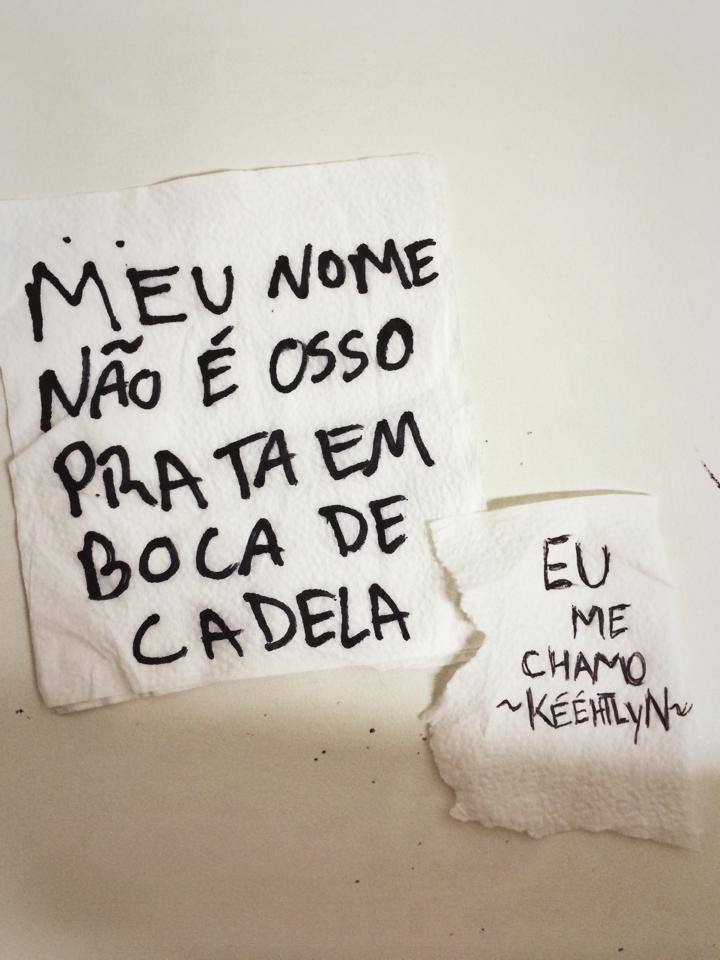 MEU NOME
NÃO É OSSO
PRA TA EM
BOCA DE
CADELA
EU
ME
CHAMO
~KÉÉHTLYN~